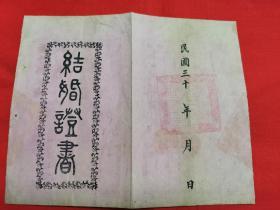 民國三十年月日
結婚證書